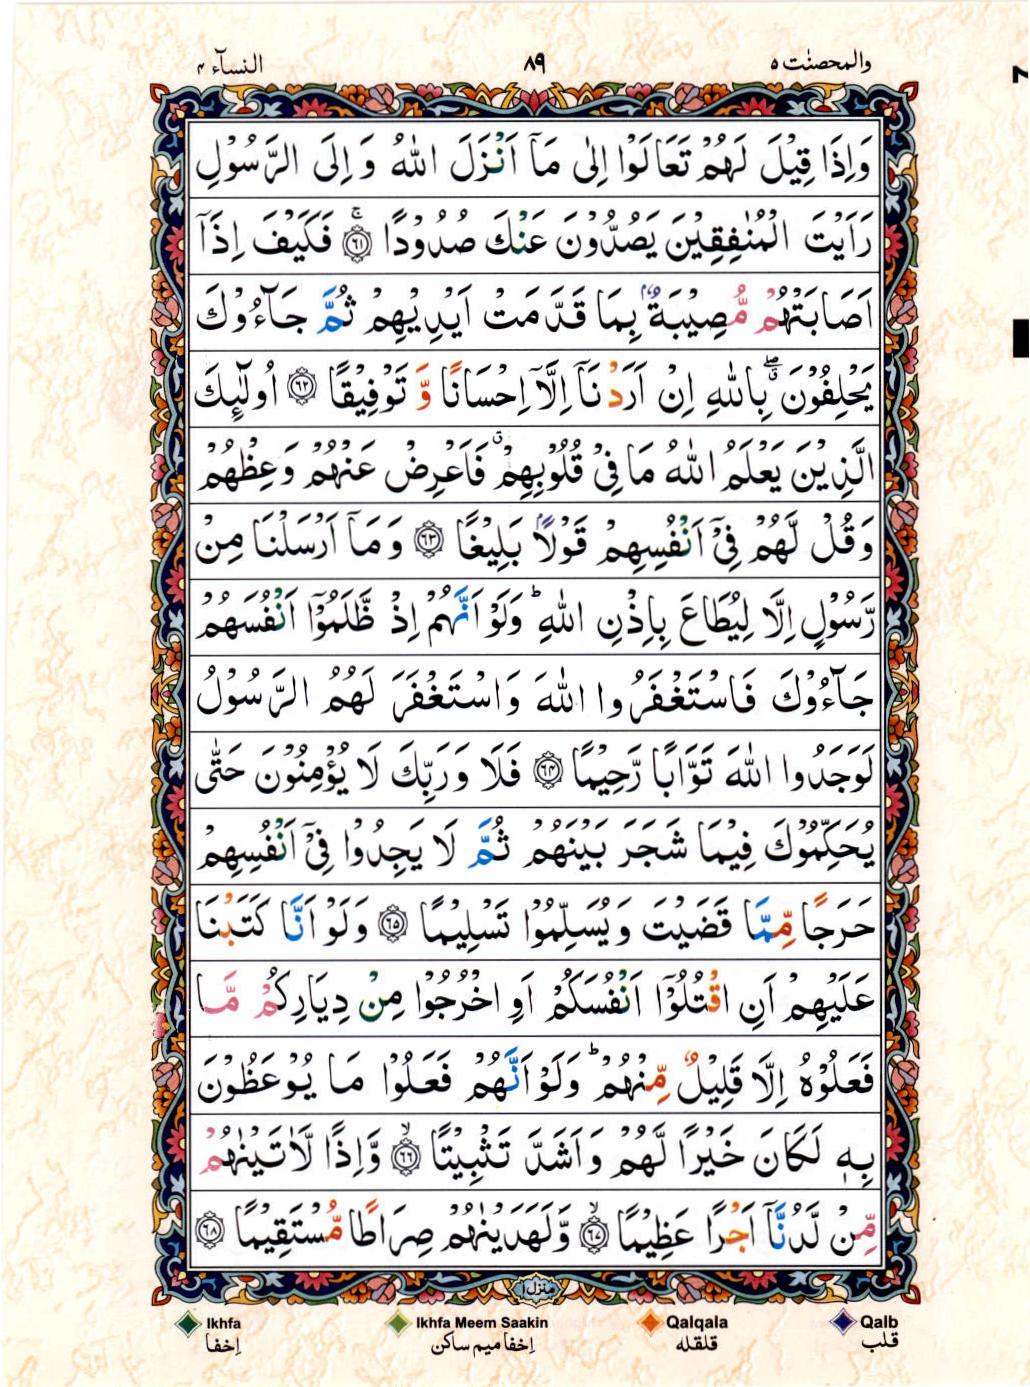 والمحصنت ٥ ٨٩ النسآء ٤
وَاِذَا قِيْلَ لَهُمْ تَعَالَوْا اِلٰى مَآ اَنْزَلَ اللّٰهُ وَ اِلَى الرَّسُوْلِ
رَاَيْتَ الْمُنٰفِقِيْنَ يَصُدُّوْنَ عَنْكَ صُدُوْدًا ۚ ﴿٦١﴾ فَكَيْفَ اِذَآ
اَصَابَتْهُمْ مُّصِيْبَةٌۢ بِمَا قَدَّمَتْ اَيْدِيْهِمْ ثُمَّ جَآءُوْكَ
يَحْلِفُوْنَ ۖۗ بِاللّٰهِ اِنْ اَرَدْنَآ اِلَّآ اِحْسَانًا وَّ تَوْفِيْقًا ﴿٦٢﴾ اُولٰٓئِكَ
الَّذِيْنَ يَعْلَمُ اللّٰهُ مَا فِيْ قُلُوْبِهِمْ ۗ فَاَعْرِضْ عَنْهُمْ وَعِظْهُمْ
وَقُلْ لَّهُمْ فِيْٓ اَنْفُسِهِمْ قَوْلًاۢ بَلِيْغًا ﴿٦٣﴾ وَمَآ اَرْسَلْنَا مِنْ
رَّسُوْلٍ اِلَّا لِيُطَاعَ بِاِذْنِ اللّٰهِ ؕ وَلَوْ اَنَّهُمْ اِذْ ظَّلَمُوْٓا اَنْفُسَهُمْ
جَآءُوْكَ فَاسْتَغْفَرُوا اللّٰهَ وَاسْتَغْفَرَ لَهُمُ الرَّسُوْلُ
لَوَجَدُوا اللّٰهَ تَوَّابًا رَّحِيْمًا ﴿٦٤﴾ فَلَا وَرَبِّكَ لَا يُؤْمِنُوْنَ حَتّٰى
يُحَكِّمُوْكَ فِيْمَا شَجَرَ بَيْنَهُمْ ثُمَّ لَا يَجِدُوْا فِيْٓ اَنْفُسِهِمْ
حَرَجًا مِّمَّا قَضَيْتَ وَيُسَلِّمُوْا تَسْلِيْمًا ﴿٦٥﴾ وَلَوْ اَنَّا كَتَبْنَا
عَلَيْهِمْ اَنِ اقْتُلُوْٓا اَنْفُسَكُمْ اَوِ اخْرُجُوْا مِنْ دِيَارِكُمْ مَّا
فَعَلُوْهُ اِلَّا قَلِيْلٌ مِّنْهُمْ ؕ وَلَوْ اَنَّهُمْ فَعَلُوْا مَا يُوْعَظُوْنَ
بِهٖ لَكَانَ خَيْرًا لَّهُمْ وَاَشَدَّ تَثْبِيْتًا ۙ ﴿٦٦﴾ وَّاِذًا لَّاٰتَيْنٰهُمْ
مِّنْ لَّدُنَّآ اَجْرًا عَظِيْمًا ۙ ﴿٦٧﴾ وَّلَهَدَيْنٰهُمْ صِرَاطًا مُّسْتَقِيْمًا ﴿٦٨﴾
منزل١
Ikhfa Ikhfa Meem Saakin Qalqala Qalb
اِخفا اِخفا میم ساکن قلقله قلب